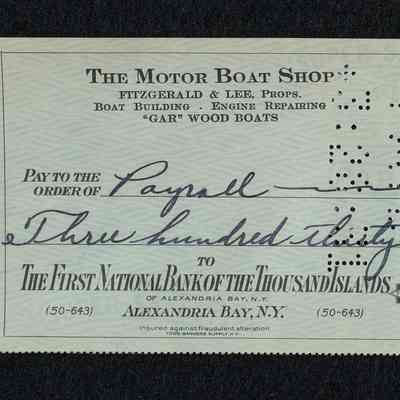 THE MOTOR BOAT SHOP
FITZGERALD & LEE, PROPS.
BOAT BUILDING - ENGINE REPAIRING
"GAR" WOOD BOATS
PAY TO THE
ORDER OF Payroll
Three hundred thirty
TO
THE FIRST NATIONAL BANK OF THE THOUSAND ISLANDS
OF ALEXANDRIA BAY, N.Y.
(50-643) ALEXANDRIA BAY, N.Y. (50-643)
Insured against fraudulent alteration
TODD BANKERS SUPPLY, N.Y.